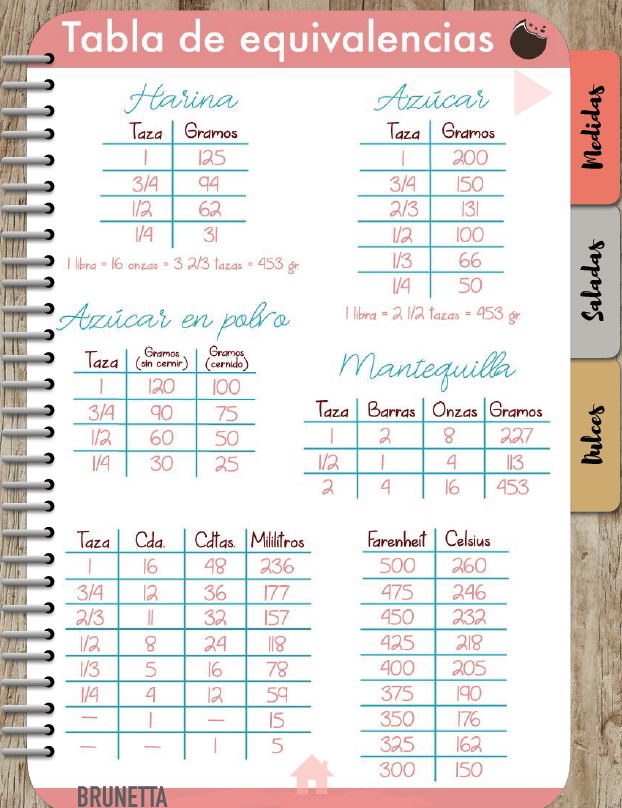 Tabla de equivalencias
Harina
Taza Gramos
1 125
3/4 94
1/2 62
1/4 31
1 libra = 16 onzas = 3 2/3 tazas = 453 gr.
Azúcar
Taza Gramos
1 200
3/4 150
2/3 131
1/2 100
1/3 66
1/4 50
1 libra = 2 1/2 tazas = 453 gr
Azúcar en polvo
Taza Gramos (sin cernir) Gramos (cernido)
1 120 100
3/4 90 75
1/2 60 50
1/4 30 25
Mantequilla
Taza Barras Onzas Gramos
1 2 8 227
1/2 1 4 113
2 4 16 453
Taza Cda. Cdtas. Mililitros
1 16 48 236
3/4 12 36 177
2/3 11 32 157
1/2 8 24 118
1/3 5 16 78
1/4 4 12 59
— 1 — 15
— — 1 5
Farenheit Celsius
500 260
475 246
450 232
425 218
400 205
375 190
350 176
325 162
300 150
Medidas
Saladas
Dulces
BRUNETTA